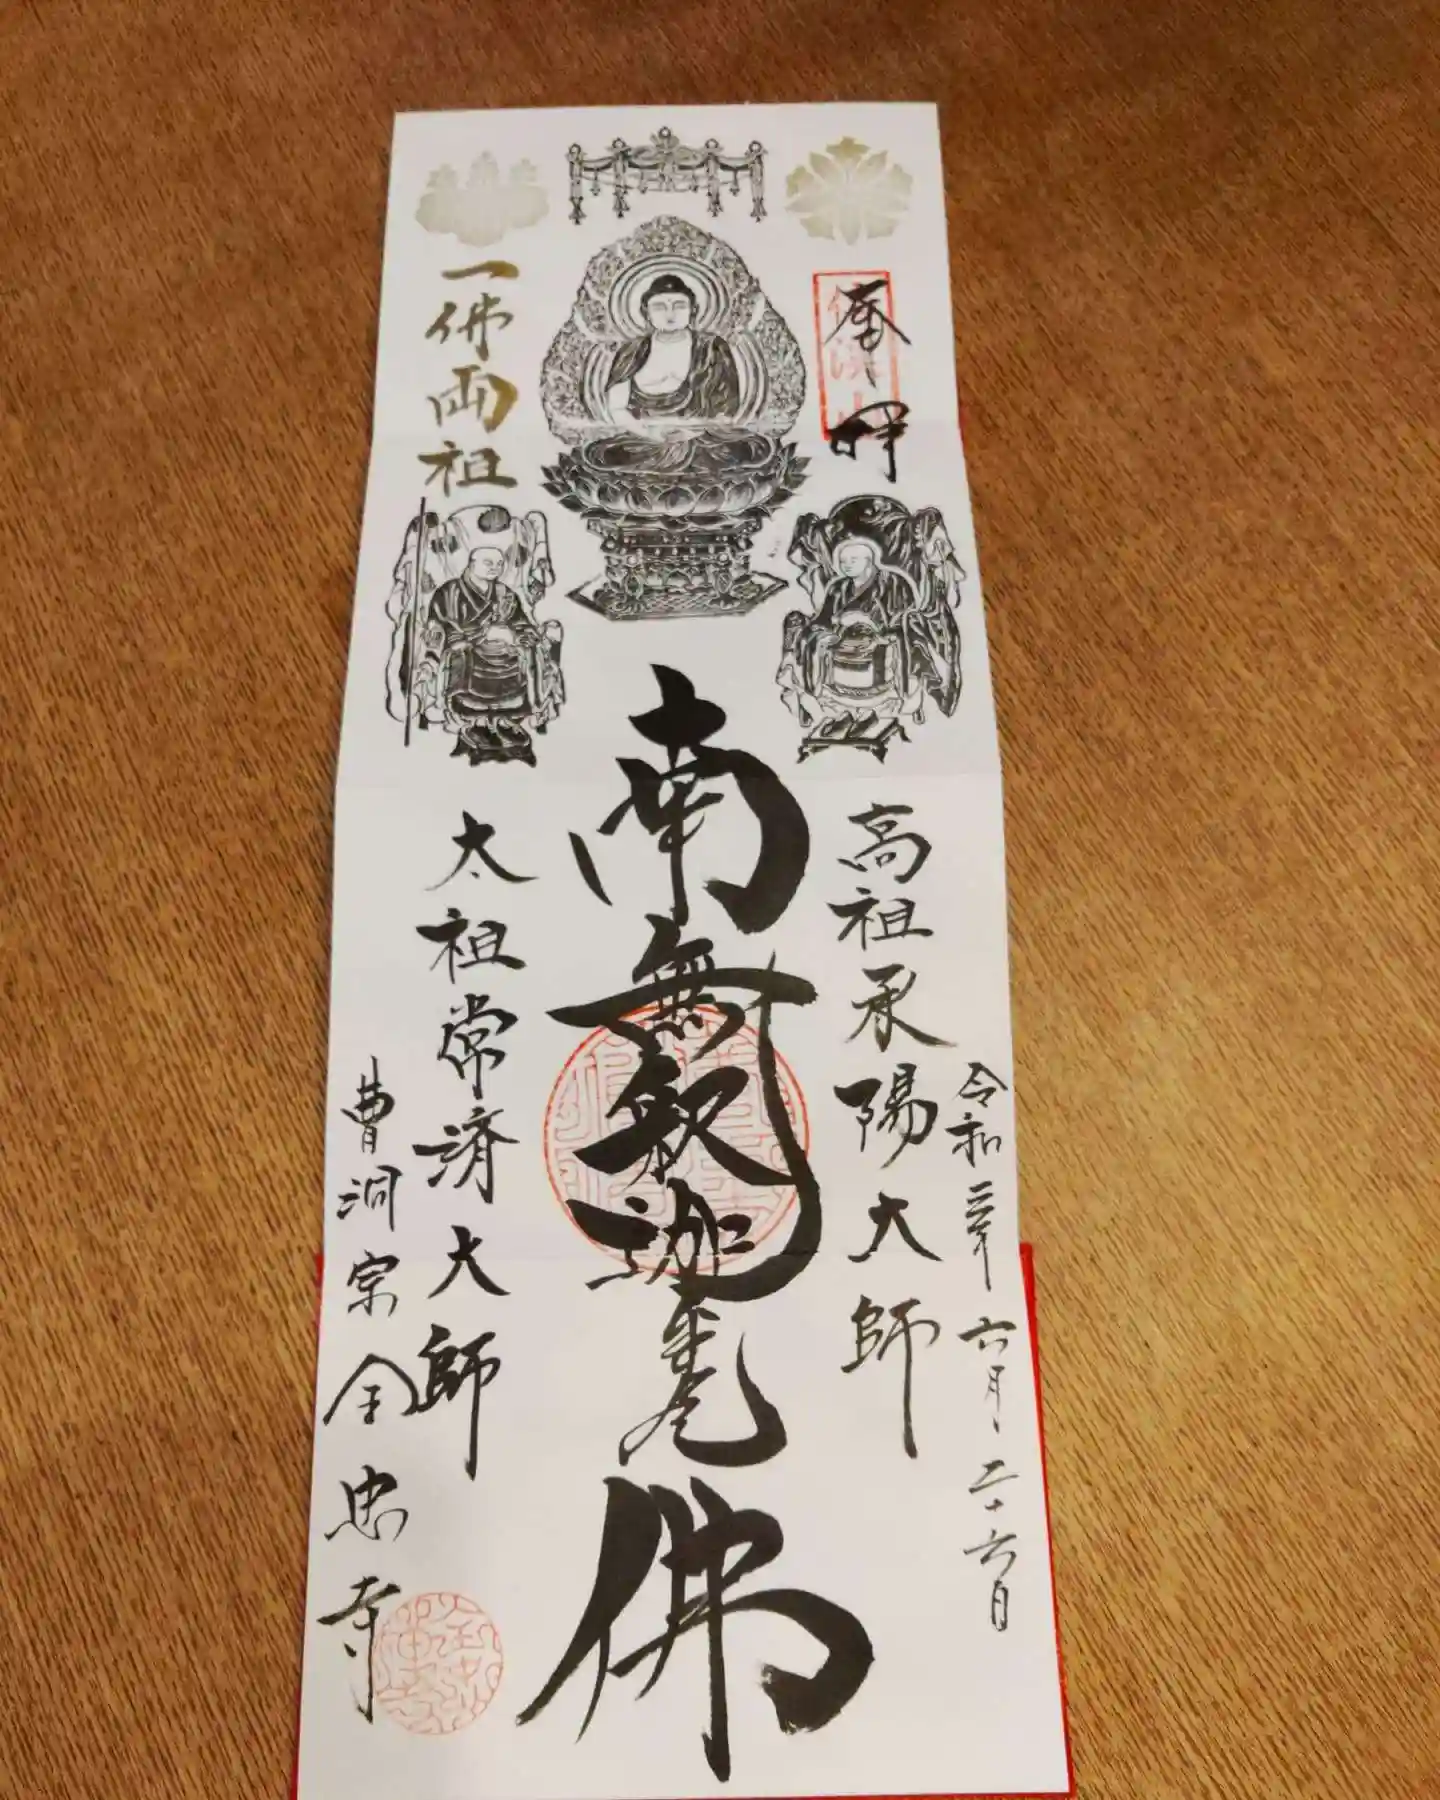 奉拝
令和三年六月二十六日
高祖承陽大師
南無釈迦牟尼佛
一佛両祖
太祖常済大師
曹洞宗全忠寺